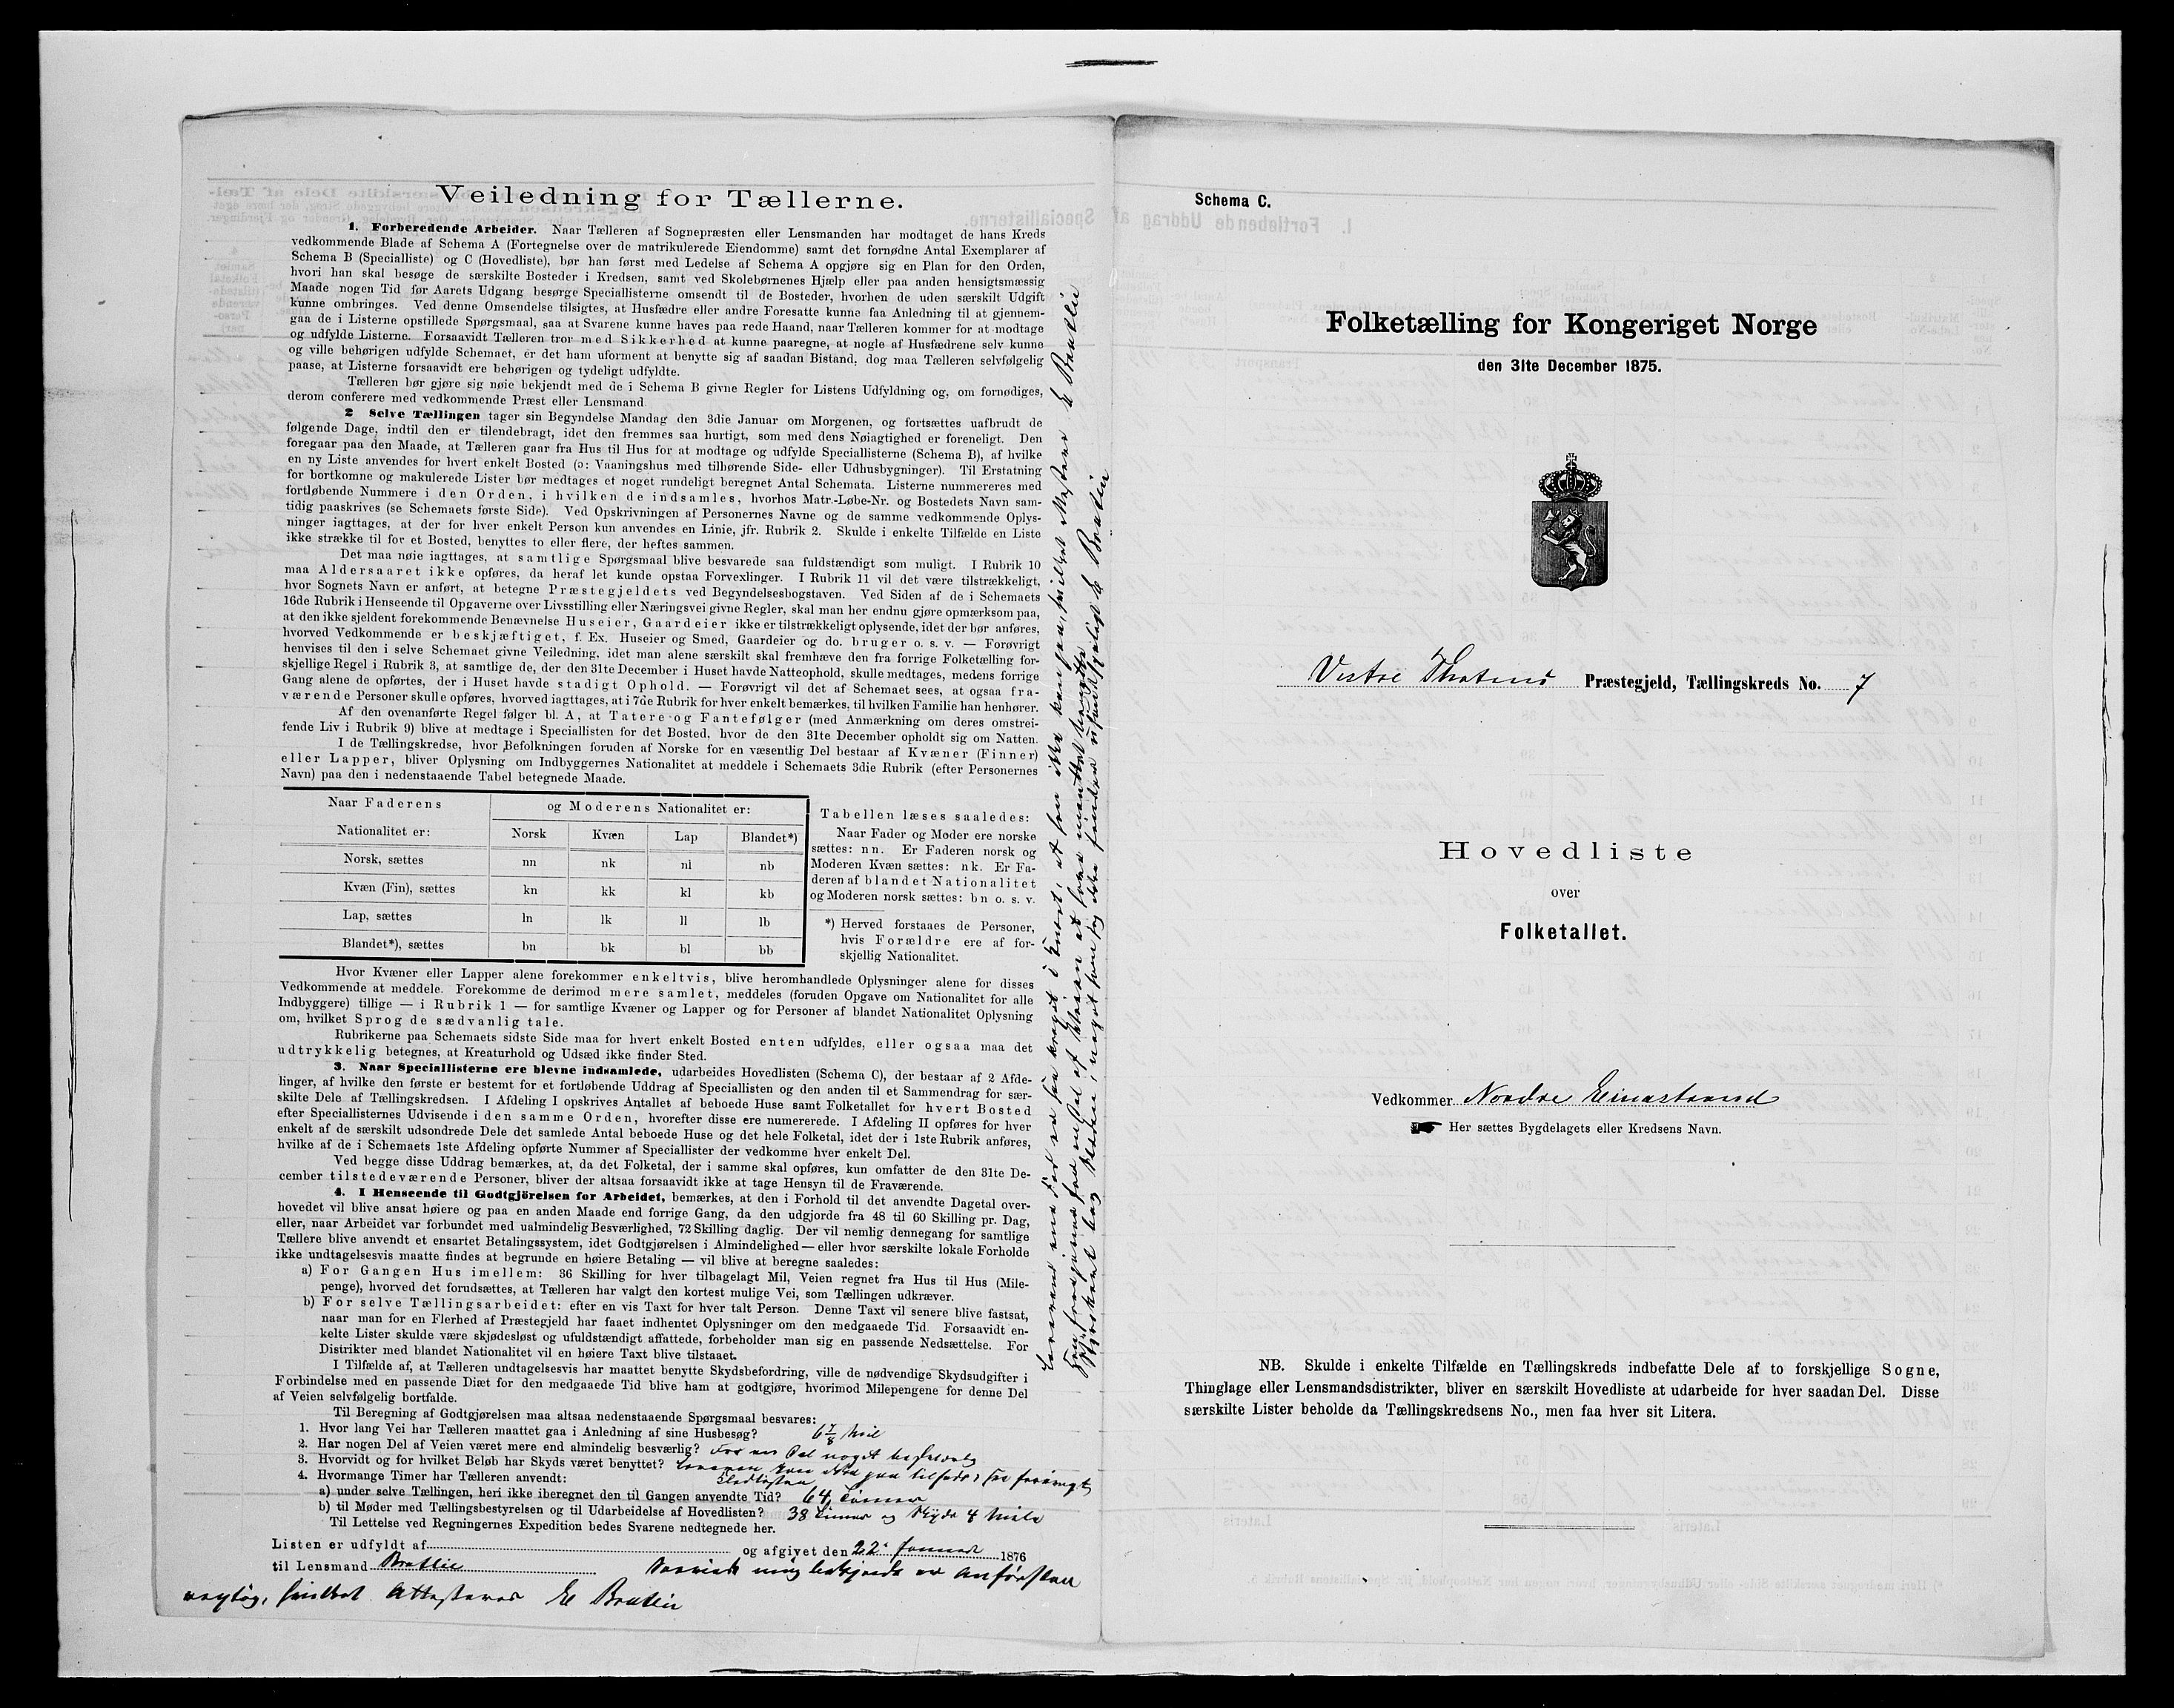 Veiledning for Tællerne.
1. Forberedende Arbeider. Naar Tælleren af Sognepræsten eller Lensmanden har modtaget de hans Kreds
vedkommende Blade af Schema A (Fortegnelse over de matrikulerede Eiendomme) samt det fornødne Antal Exemplarer af
Schema B (Specialliste) og C (Hovedliste), bør han først med Ledelse af Schema A opgjøre sig en Plan for den Orden,
hvori han skal besøge de særskilte Bosteder i Kredsen, samt ved Skolebørnenes Hjælp eller paa anden hensigtsmæssig
Maade nogen Tid før Aarets Udgang besørge Speciallisterne omsendt til de Bosteder, hvorhen de uden særskilt Udgift
kunne ombringes. Ved denne Omsendelse tilsigtes, at Husfædre eller andre Foresatte kunne faa Anledning til at gjennem-
gaa de i Listerne opstillede Spørgsmaal, saa at Svarene kunne haves paa rede Haand, naar Tælleren kommer for at modtage
og udfylde Listerne. Forsaavidt Tælleren tror med Sikkerhed at kunne paaregne, at nogle af Husfædrene selv kunne
og ville behørigen udfylde Schemaet, er det ham uforment at benytte sig af saadan Bistand, dog maa Tælleren selvfølgelig
paase, at Listerne forsaavidt ere behørigen og tydeligt udfyldte.
Tælleren bør gjøre sig nøie bekjendt med de i Schema B givne Regler for Listens Udfyldning og, om fornødiges,
derom conferere med vedkommende Præst eller Lensmand.
2 Selve Tællingen tager sin Begyndelse Mandag den 3die Januar om Morgenen, og fortsættes uafbrudt de
følgende Dage, indtil den er tilendebragt, idet den fremmes saa hurtigt, som med dens Nøiagtighed er foreneligt. Den
foregaar paa den Maade, at Tælleren gaar fra Hus til Hus for at modtage og udfylde Speciallisterne (Schema B), af hvilke
en ny Liste anvendes for hvert enkelt Bosted (ɔ: Vaaningshus med tilhørende Side- eller Udhusbygninger). Til Erstatning
for bortkomne og makulerede Lister bør medtages et noget rundeligt beregnet Antal Schemata. Listerne nummereres med
fortløbende Nummere i den Orden, i hvilken de indsamles, hvorhos Matr.-Løbe-Nr. og Bostedets Navn sam-
tidig paaskrives (se Schemaets første Side). Ved Opskrivningen af Personernes Navne og de samme vedkommende Oplys-
ninger iagttages, at der for hver enkelt Person kun anvendes en Linie, jfr. Rubrik 2. Skulde i enkelte Tilfælde en Liste
ikke strække til for et Bosted, benyttes to eller flere, der heftes sammen.
Det maa nøie iagttages, at samtlige Spørgsmaal blive besvarede saa fuldstændigt som muligt. I Rubrik 10
maa Aldersaaret ikke opføres, da heraf let kunde opstaa Forvexlinger. I Rubrik 11 vil det være tilstrækkeligt,
hvor Sognets Navn er anført, at betegne Præstegjeldets ved Begyndelsesbogstaven. Ved Siden af de i Schemaets
16de Rubrik i Henseende til Opgaverne over Livsstilling eller Næringsvei givne Regler, skal man her endnu gjøre opmærksom paa,
at den ikke sjeldent forekommende Benævnelse Huseier, Gaardeier ikke er tilstrækkeligt oplysende, idet der bør anføres,
hvorved Vedkommende er beskjæftiget, f. Ex. Huseier og Smed, Gaardeier og do. bruger o. s. v. — Forøvrigt
henvises til den i selve Schemaet givne Veiledning, idet man alene særskilt skal fremhæve den fra forrige Folketælling for-
skjellige Regel i Rubrik 3, at samtlige de, der den 31te December i Huset havde Natteophold, skulle medtages, medens forrige
Gang alene de opførtes, der i Huset havde stadigt Ophold. — Forøvrigt vil det af Schemaet sees, at ogsaa fra-
værende Personer skulle opføres, hvorved iagttages, at i 7de Rubrik for hver enkelt bemærkes, til hvilken Familie han henhører.
Af den ovenanførte Regel følger bl. A., at Tatere og Fantefølger (med Anmærkning om deres omstrei-
fende Liv i Rubrik 9) blive at medtage i Speciallisten for det Bosted, hvor de den 31te December opholdt sig om Natten.
I de Tællingskredse, hvor Befolkningen foruden af Norske for en væsentlig Del bestaar af Kvæner (Finner)
eller Lapper, bliver Oplysning om Indbyggernes Nationalitet at meddele i Schemaets 3die Rubrik (efter Personernes
Navn) paa den i nedenstaaende Tabel betegnede Maade.
Naar Faderens og Moderens Nationalitet er:
Nationalitet er: Norsk Kvæn Lap Blandet*)
Norsk, sættes nn nk nl nb
Kvæn (Fin), sættes kn kk kl kb
Lap, sættes ln lk ll lb
Blandet*), sættes bn bk bl bb
Tabellen læses saaledes:
Naar Fader og Moder ere norske
sættes: nn. Er Faderen norsk og
Moderen Kvæn sættes: nk. Er Fa-
deren af blandet Nationalitet
og Moderen norsk sættes: bn o. s. v.
*) Herved forstaaes de Personer,
hvis Forældre ere af for-
skjellig Nationalitet.
Hvor Kvæner eller Lapper alene forekommer enkeltvis, blive heromhandlede Oplysninger alene for disses
Vedkommende at meddele. Forekomme de derimod mere samlet, meddeles (foruden Opgave om Nationalitet for alle
Indbyggere) tillige — i Rubrik 1 — for samtlige Kvæner og Lapper og for Personer af blandet Nationalitet Oplysning
om, hvilket Sprog de sædvanlig tale.
Rubrikerne paa Schemaets sidste Side maa for hvert enkelt Bosted enten udfyldes, eller ogsaa maa det
udtrykkelig betegnes, at Kreaturhold og Udsæd ikke finder Sted.
3. Naar Speciallisterne ere blevne indsamlede, udarbeides Hovedlisten (Schema C), der bestaar af 2 Afde-
linger, af hvilke den første er bestemt for et fortløbende Uddrag af Speciallisten og den anden til et Sammendrag for sær-
skilte Dele af Tællingskredsen. I Afdeling I opskrives Antallet af beboede Huse samt Folketallet for hvert Bosted
efter Speciallisternes Udvisende i den samme Orden, hvorefter disse ere numererede. I Afdeling II opføres for hver
enkelt af de særskilt udsondrede Dele det samlede Antal beboede Huse og det hele Folketal, idet der i 1ste Rubrik anføres,
hvilke af de i Schemaets 1ste Afdeling opførte Nummer af Speciallister der vedkomme hver enkelt Del.
Ved begge disse Uddrag bemærkes, at, da det Folketal, der i samme skal opføres, kun omfatter de den 31te De-
cember tilstedeværende Personer, bliver der altsaa forsaavidt ikke at tage Hensyn til de Fraværende.
4. I Henseende til Godtgjörelsen for Arbeidet, bemærkes, at den i Forhold til det anvendte Dagetal over-
hovedet vil blive ansat høiere og paa en anden Maade end forrige Gang, da den udgjorde fra 48 til 60 Skilling pr. Dag,
eller, naar Arbeidet var forbundet med ualmindelig Besværlighed, 72 Skilling daglig. Der vil nemlig dennegang for samtlige
Tællere blive anvendt et ensartet Betalingssystem, idet Godtgjørelsen i Almindelighed — eller hvor særskilte lokale Forholde
ikke undtagelsesvis maatte findes at begrunde en høiere Betaling — vil blive at beregne saaledes:
a) For Gangen Hus imellem: 36 Skilling for hver tilbagelagt Mil, Veien regnet fra Hus til Hus (Mile-
penge), hvorved det forudsættes, at Tælleren har valgt den kortest mulige Vei, som Tællingen udkræver.
b) For selve Tællingsarbeidet: efter en vis Taxt for hver talt Person. Denne Taxt vil senere blive fastsat,
naar man for en Flerhed af Præstegjeld har faaet indhentet Oplysninger om den medgaaede Tid. Forsaavidt en-
kelte Lister skulde være skjødesløst og ufuldstændigt affattede, forbeholder man sig en passende Nedsættelse. For
Distrikter med blandet Nationalitet vil en høiere Taxt blive tilstaaet.
I Tilfælde af, at Tælleren undtagelsesvis har maattet benytte Skydsbefordring, ville de nødvendige Skydsudgifter i
Forbindelse med en passende Diæt for den medgaaede Tid blive ham at godtgjøre, hvorimod Milepengene for denne Del
af Veien selvfølgelig bortfalde.
Til Beregning af Godtgjørelsen maa altsaa nedenstaaende Spørgsmaal besvares:
1. Hvor lang Vei har Tælleren maattet gaa i Anledning af sine Husbesøg? 6 7/8 Miil
2. Har nogen Del af Veien været mere end almindelig besværlig? For en Del noget besværlig
3. Hvorvidt og for hvilket Beløb har Skyds været benyttet?
4. Hvormange Timer har Tælleren anvendt:
a) under selve Tællingen, heri ikke iberegnet den til Gangen anvendte Tid? 64 Timer
b) til Møder med Tællingsbestyrelsen og til Udarbeidelse af Hovedlisten? 38 Timer og Skyds 4 Mile
Til Lettelse ved Regningernes Expedition bedes Svarene nedtegnede her.
Listen er udfyldt af og afgivet den 22 Januar 1876
til Lensmand Bratlie
rigtig, hvilket Attesteres E Bratlie
Schema C.
Folketælling for Kongeriget Norge
den 31te December 1875.
Vestre Thotens Præstegjeld, Tællingskreds No. 7
Hovedliste
over
Folketallet.
Vedkommer Nordre Einastrand
Her sættes Bygdelagets eller Kredsens Navn.
NB. Skulde i enkelte Tilfælde en Tællingskreds indbefatte Dele af to forskjellige Sogne,
Thinglage eller Lensmandsdistrikter, bliver en særskilt Hovedliste at udarbeide for hver saadan Del. Disse
særskilte Lister beholde da Tællingskredsens No., men faa hver sit Litera.